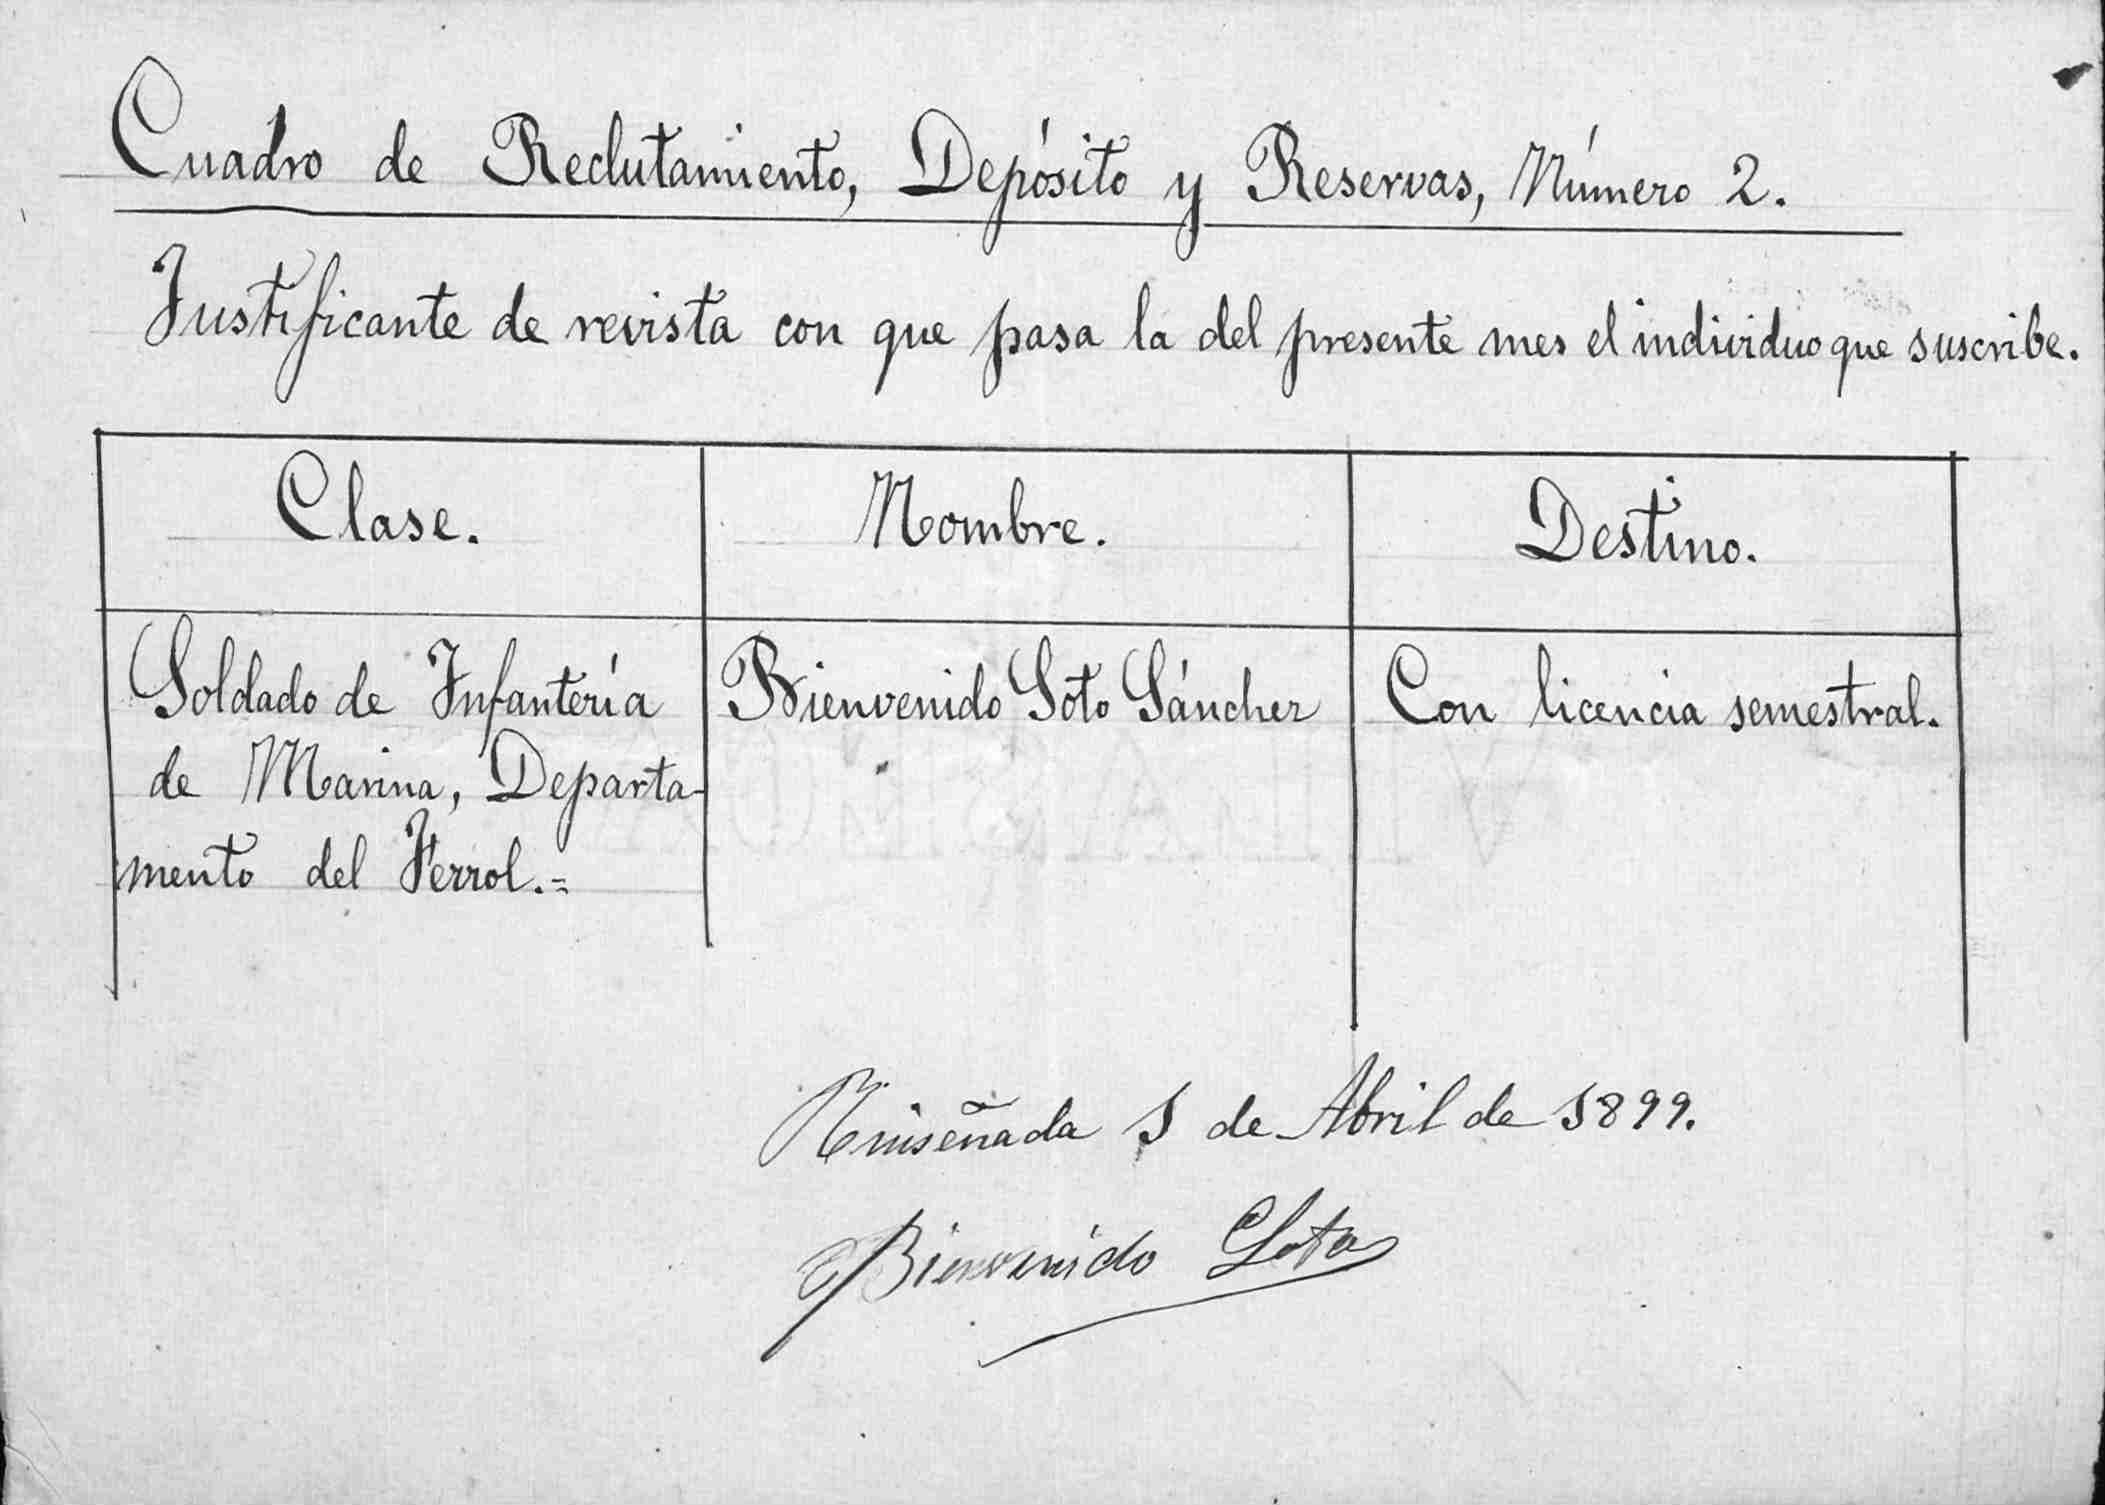 Cuadro de Reclutamiento, Depósito y Reservas, Número 2.
Justificante de revista con que pasa la del presente mes el individuo que suscribe.
Clase. Nombre. Destino.
Soldado de Infantería Bienvenido Soto Sánchez Con licencia semestral.
de Marina, Departa-
mento del Ferrol.=
Ruiseñada 1 de Abril de 1899.
Bienvenido Soto